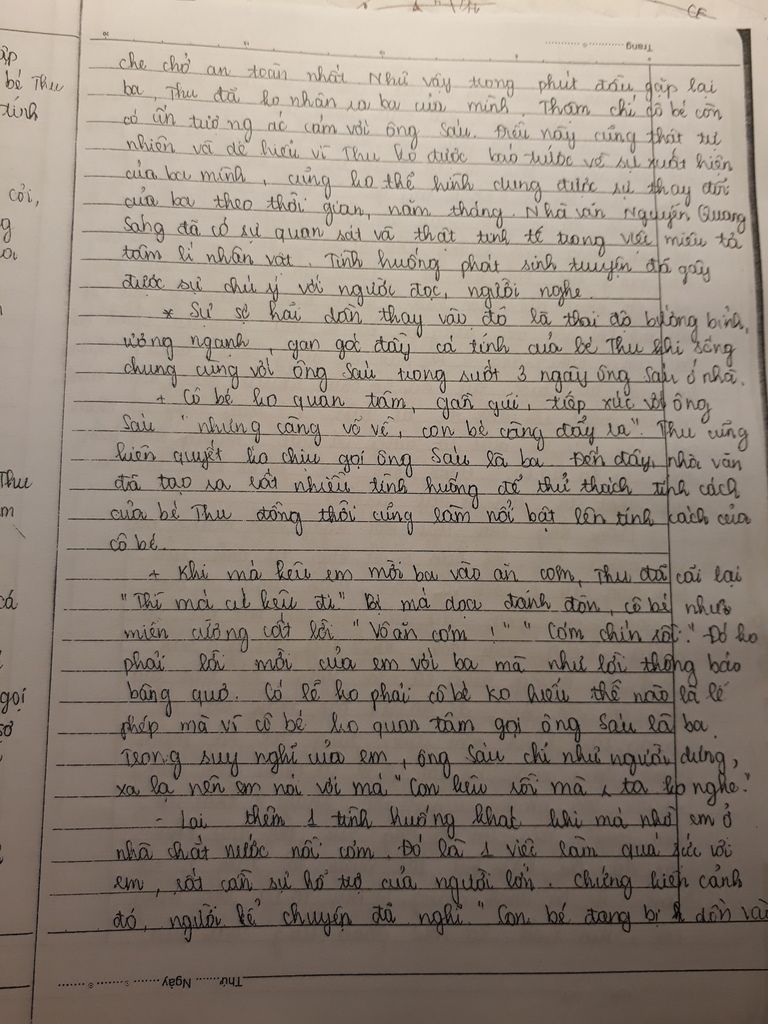 CF
Trang
ập
bé Thu
tính
cỏi,
Thu
m
cá
gọi
sơ
che chở an toàn nhất Như vậy trong phút đầu gặp lại
ba, Thu đã ko nhận ra ba của mình. Thậm chí cô bé còn
có ấn tượng ác cảm với ông Sáu. Điều này cũng thật tự
nhiên và dễ hiểu vì Thu ko được báo trước về sự xuất hiện
của ba mình, cũng ko thể hình dung được sự thay đổi
của ba theo thời gian, năm tháng. Nhà văn Nguyễn Quang
Sáng đã có sự quan sát và thật tinh tế trong việc miêu tả
tâm lí nhân vật. Tình huống phát sinh truyện đã gây
được sự chú ý với người đọc, người nghe.
* Sự sợ hãi dần thay vào đó là thái độ bướng bỉnh,
ương ngạnh, gan gót đầy cá tính của bé Thu khi sống
chung cùng với ông Sáu trong suốt 3 ngày ông Sáu ở nhà.
+ Cô bé ko quan tâm, gần gũi, tiếp xúc với ông
Sáu "nhưng càng vỗ về, con bé càng đẩy ra". Thu cũng
kiên quyết ko chịu gọi ông Sáu là ba. Đến đây, nhà văn
đã tạo ra rất nhiều tình huống để thử thách tính cách
của bé Thu đồng thời cũng làm nổi bật lên tính cách của
cô bé.
+ Khi má kêu em mời ba vào ăn cơm, Thu đã cãi lại
"Thì má cứ kêu đi" Bị má dọa đánh đòn, cô bé như
miễn cưỡng cất lời "Vô ăn cơm !" "Cơm chín rồi." Đó ko
phải lời mời của em với ba mà như lời thông báo
bâng quơ. Có lẽ ko phải cô bé ko hiểu thế nào là lễ
phép mà vì cô bé ko quan tâm gọi ông Sáu là ba.
Trong suy nghĩ của em, ông Sáu chỉ như người dưng,
xa lạ nên em nói với má "Con kêu rồi mà ta ko nghe."
- Lại thêm 1 tình huống khác khi má nhờ em ở
nhà chắt nước nồi cơm. Đó là 1 việc làm quá sức với
em, rất cần sự hỗ trợ của người lớn. Chứng kiến cảnh
đó, người kể chuyện đã nghĩ "Con bé đang bị dồn vào
Thứ........ Ngày